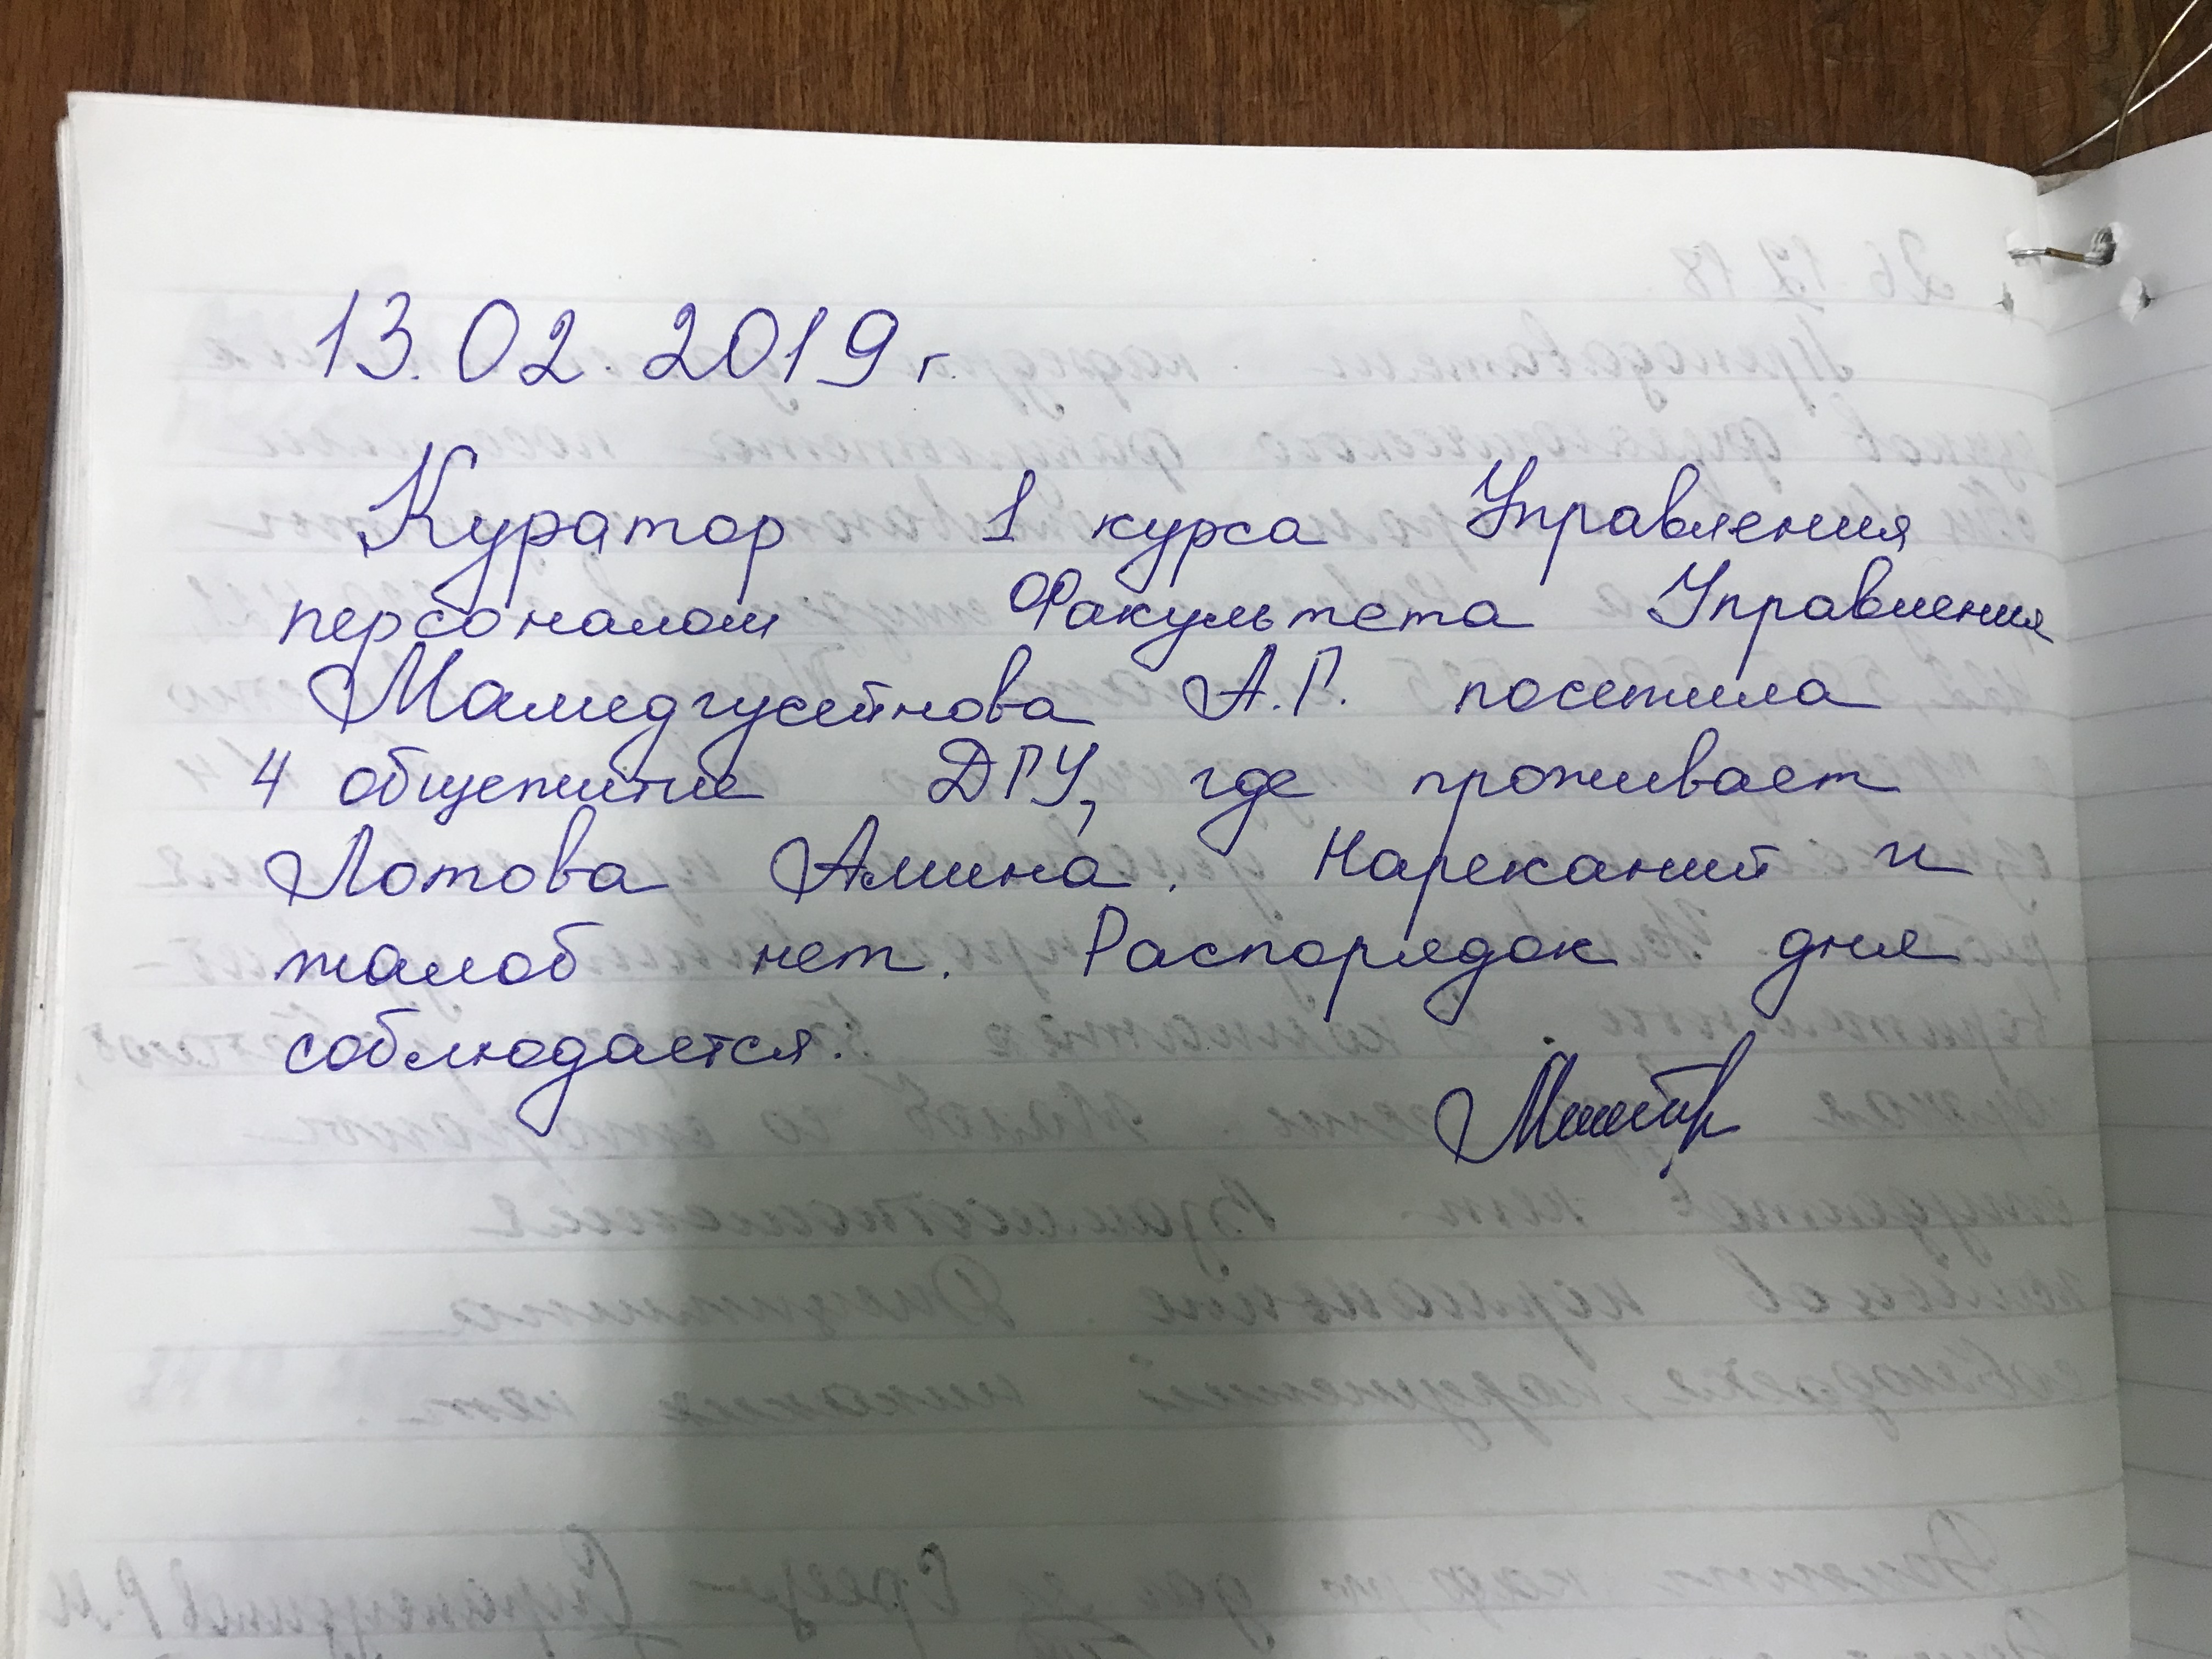 13.02.2019 г.
Куратор 1 курса Управления
персоналом Факультета Управления
Мамедгусейнова А.Г. посетила
4 общежитие ДГУ, где проживает
Лотова Амина. Нареканий и
жалоб нет. Распорядок дня
соблюдается.